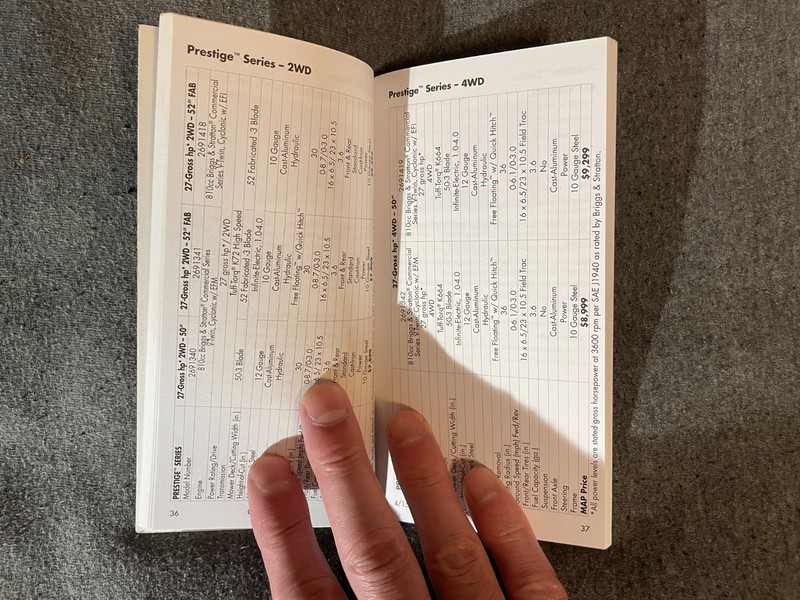 Prestige™ Series – 2WD
PRESTIGE SERIES 27-Gross hp* 2WD – 50" 27-Gross hp* 2WD – 52" FAB 27-Gross hp* 2WD – 52" FAB
Model Number 2691340 2691341 2691418
Engine 810cc Briggs & Stratton® Commercial Series 810cc Briggs & Stratton® Commercial
V-Twin, Cyclonic w/ EFM Series V-Twin, Cyclonic w/ EFI
Power Rating/Drive 27 gross hp*/ 2WD
Transmission Tuff-Torq® K72 High Speed
Mower Deck/Cutting Width (in.) 50-3 Blade 52 Fabricated -3 Blade 52 Fabricated -3 Blade
Height-of-Cut (in.) Infinite-Electric, 1.0-4.0
12 Gauge 10 Gauge 10 Gauge
Cast-Aluminum Cast-Aluminum Cast-Aluminum
Hydraulic Hydraulic Hydraulic
Free Floating™ w/ Quick Hitch™
30 30 30
0-8.7/0-3.0 0-8.7/0-3.0 0-8.7/0-3.0
16 x 6.5/23 x 10.5 16 x 6.5/23 x 10.5
3.6 3.6 3.6
Front & Rear Front & Rear
Standard Standard Standard
Cast-Iron Cast-Iron Cast-Iron
Power Power Power
36
Prestige™ Series – 4WD
27-Gross hp* 4WD – 50"
2691342 2691419
810cc Briggs & Stratton® Commercial 810cc Briggs & Stratton® Commercial
Series V-Twin, Cyclonic w/ EFM Series V-Twin, Cyclonic w/ EFI
27 gross hp* 27 gross hp*
4WD 4WD
Tuff-Torq® K664 Tuff-Torq® K664
Deck/Cutting Width (in.) 50-3 Blade 50-3 Blade
Infinite-Electric, 1.0-4.0 Infinite-Electric, 1.0-4.0
12 Gauge 12 Gauge
Cast-Aluminum Cast-Aluminum
Hydraulic Hydraulic
Free Floating™ w/ Quick Hitch™ Free Floating™ w/ Quick Hitch™
Radius (in.) 36 36
Speed (mph) Fwd/Rev 0-6.1/0-3.0 0-6.1/0-3.0
Front/Rear Tires (in.) 16 x 6.5/23 x 10.5 Field Trac 16 x 6.5/23 x 10.5 Field Trac
Fuel Capacity (ga.) 3.6 3.6
Suspension No No
Front Axle Cast-Aluminum Cast-Aluminum
Steering Power Power
Frame 10 Gauge Steel 10 Gauge Steel
MAP Price $8,999 $9,299
*All power levels are stated gross horsepower at 3600 rpm per SAE J1940 as rated by Briggs & Stratton.
37